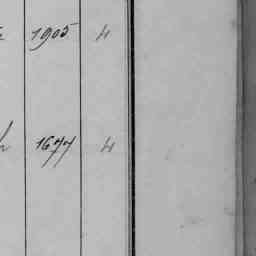 1905 4
1677 4